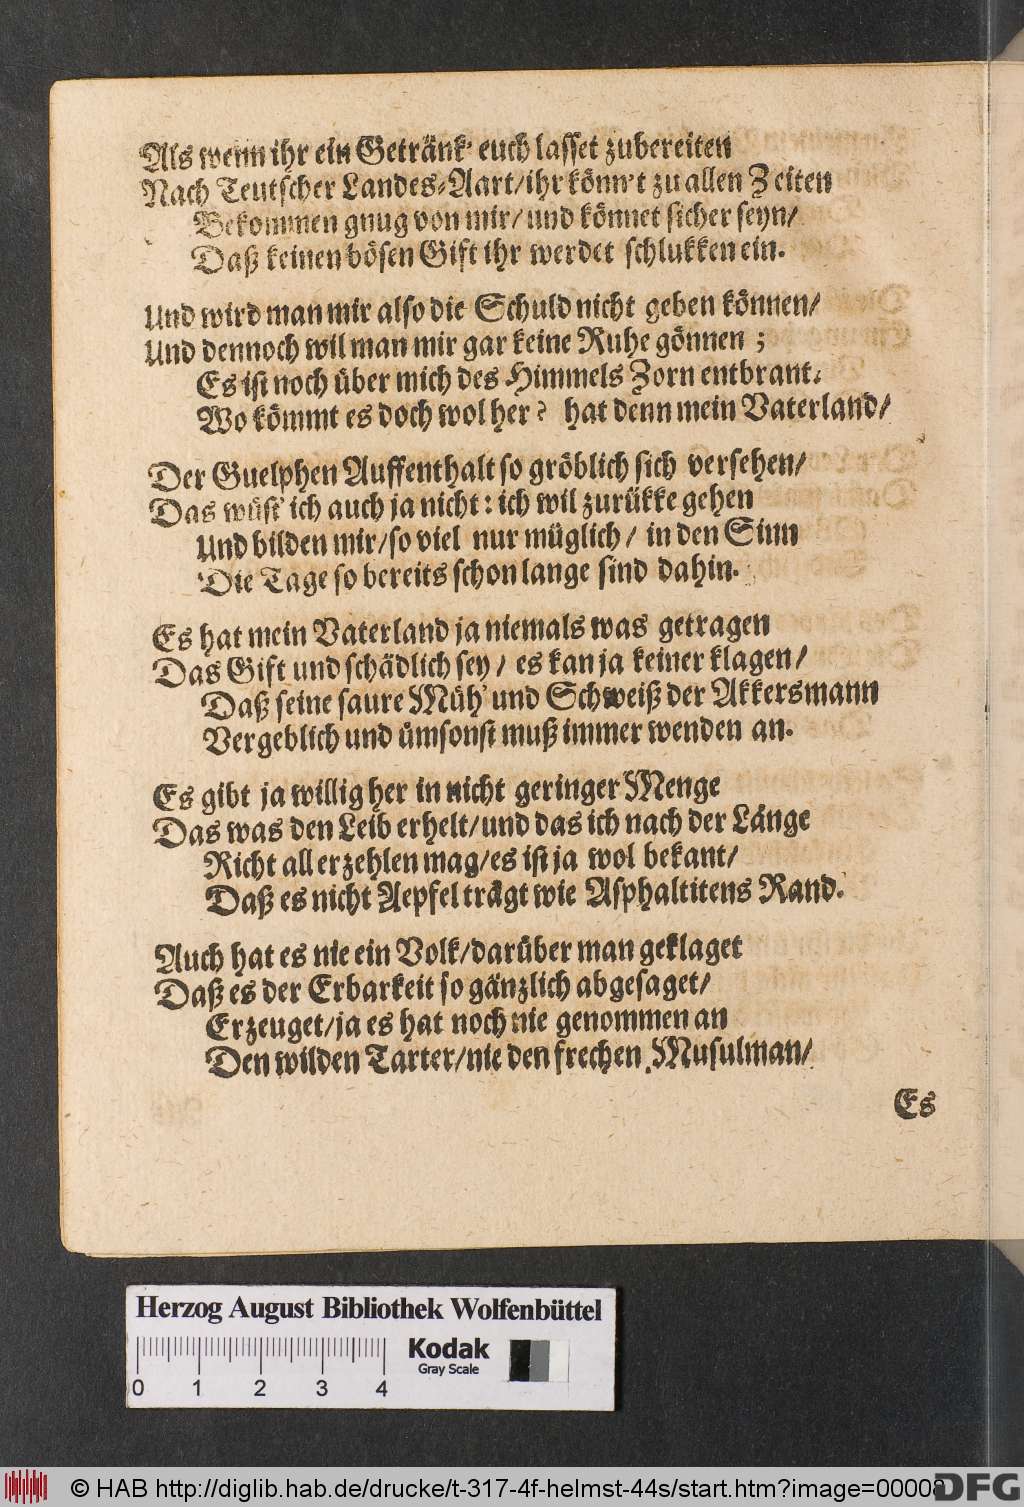 Als wenn ihr ein Getränk' euch lasset zubereiten
Nach Teutscher Landes-Aart/ihr könn't zu allen Zeiten
Bekommen gnug von mir/ und könnet sicher seyn/
Daß keinen bösen Gift ihr werdet schlukken ein.
Und wird man mir also die Schuld nicht geben können/
Und dennoch wil man mir gar keine Ruhe gönnen ;
Es ist noch über mich des Himmels Zorn entbrant.
Wo kömmt es doch wol her? hat denn mein Vaterland/
Der Guelphen Auffenthalt so gröblich sich versehen/
Das wüst' ich auch ja nicht: ich wil zurükke gehen
Und bilden mir/so viel nur müglich/ in den Sinn
Die Tage so bereits schon lange sind dahin.
Es hat mein Vaterland ja niemals was getragen
Das Gift und schädlich sey/ es kan ja keiner klagen/
Daß seine saure Müh' und Schweiß der Akkersmann
Vergeblich und ümsonst muß immer wenden an.
Es gibt ja willig her in nicht geringer Menge
Das was den Leib erhelt/und das ich nach der Länge
Nicht all erzehlen mag/es ist ja wol bekant/
Daß es nicht Aepfel trägt wie Asphaltitens Rand.
Auch hat es nie ein Volk/darüber man geklaget
Daß es der Erbarkeit so gänzlich abgesaget/
Erzeuget/ja es hat noch nie genommen an
Den wilden Tarter/nie den frechen Musulman/
Es
Herzog August Bibliothek Wolfenbüttel
Kodak
Gray Scale
0 1 2 3 4
© HAB http://diglib.hab.de/drucke/t-317-4f-helmst-44s/start.htm?image=00008
DFG